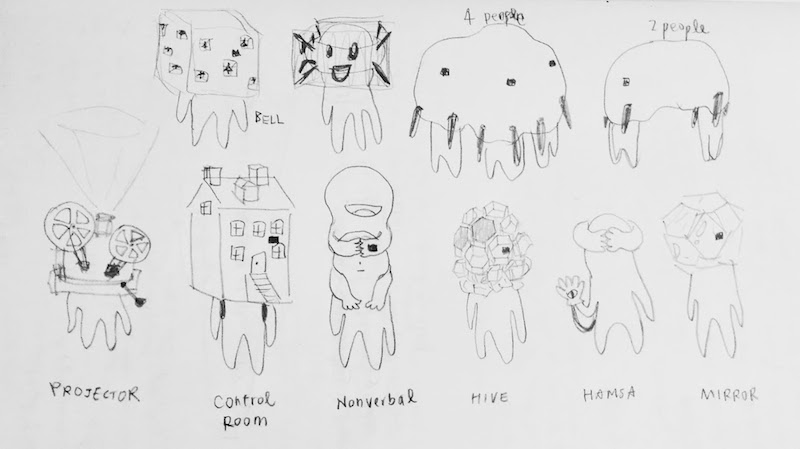 4 people
2 people
BELL
PROJECTOR
Control
Room
Nonverbal
HIVE
HAMSA
MIRROR